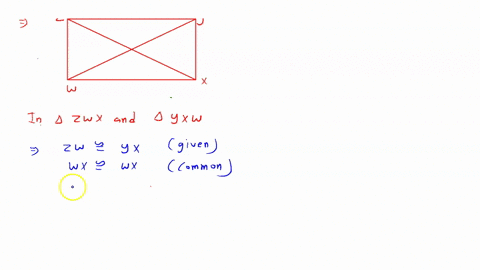 ⇒
y
w x
In Δ zwx and Δ yxw
⇒ zw ≅ yx (given)
wx ≅ wx (common)